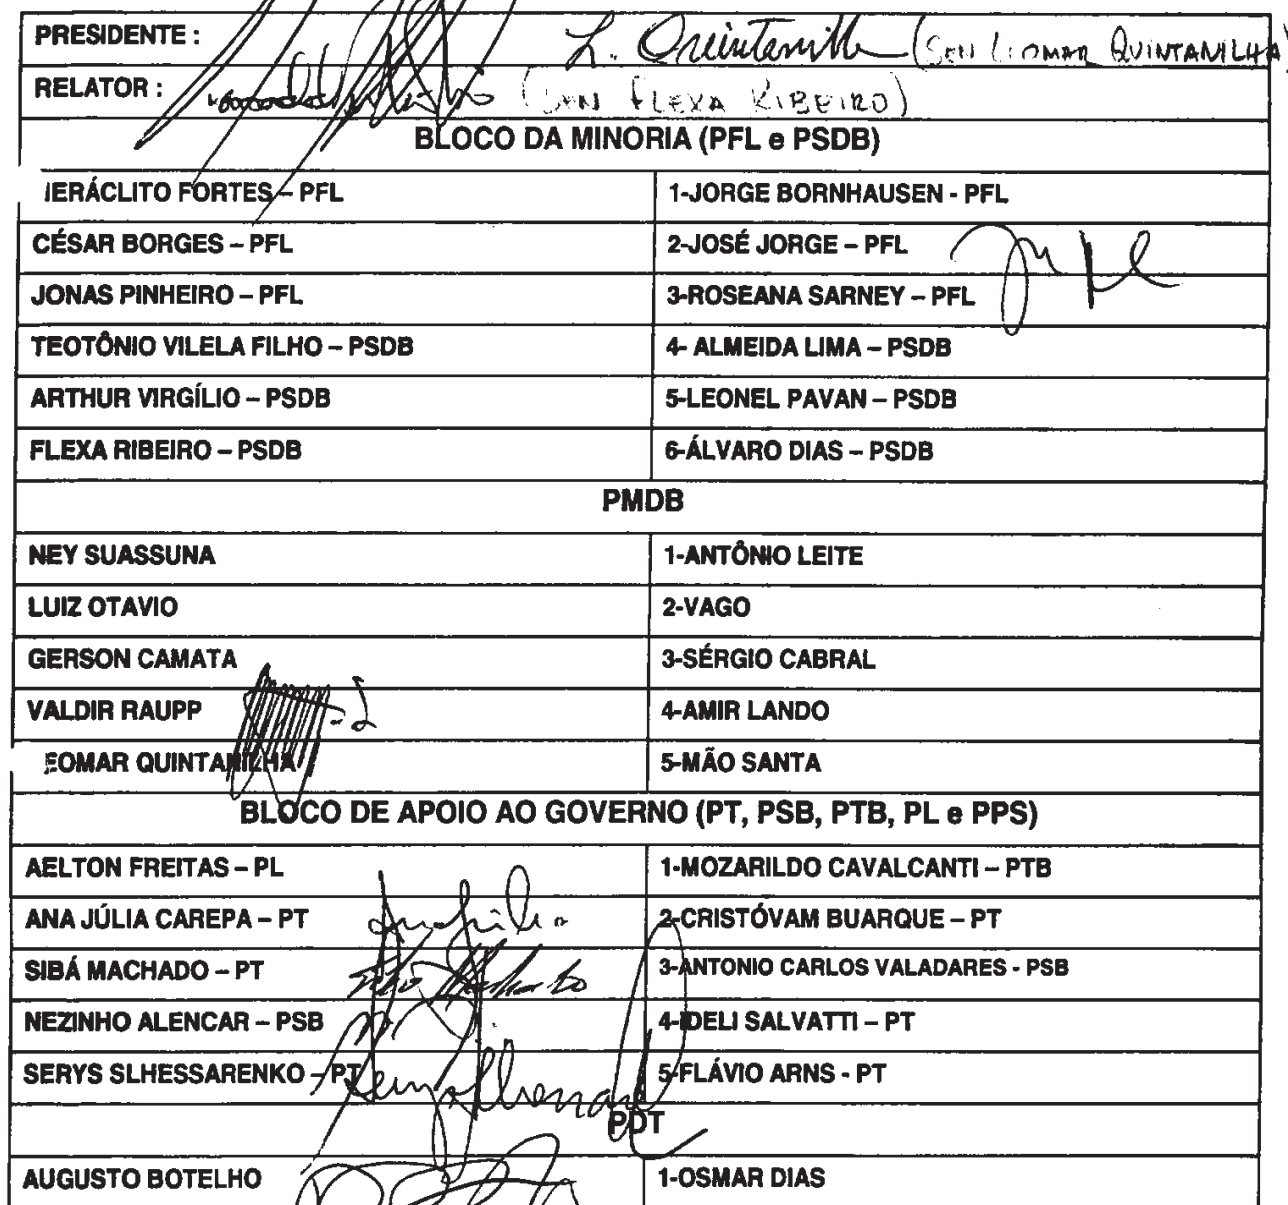 PRESIDENTE : L. Quintanilha (SEN LEOMAR QUINTANILHA)
RELATOR : (SEN FLEXA RIBEIRO)
BLOCO DA MINORIA (PFL e PSDB)
IERÁCLITO FORTES – PFL 1-JORGE BORNHAUSEN - PFL
CÉSAR BORGES – PFL 2-JOSÉ JORGE – PFL
JONAS PINHEIRO – PFL 3-ROSEANA SARNEY – PFL
TEOTÔNIO VILELA FILHO – PSDB 4- ALMEIDA LIMA – PSDB
ARTHUR VIRGÍLIO – PSDB 5-LEONEL PAVAN – PSDB
FLEXA RIBEIRO – PSDB 6-ÁLVARO DIAS – PSDB
PMDB
NEY SUASSUNA 1-ANTÔNIO LEITE
LUIZ OTAVIO 2-VAGO
GERSON CAMATA 3-SÉRGIO CABRAL
VALDIR RAUPP 4-AMIR LANDO
EOMAR QUINTANILHA 5-MÃO SANTA
BLOCO DE APOIO AO GOVERNO (PT, PSB, PTB, PL e PPS)
AELTON FREITAS – PL 1-MOZARILDO CAVALCANTI – PTB
ANA JÚLIA CAREPA – PT 2-CRISTÓVAM BUARQUE – PT
SIBÁ MACHADO – PT 3-ANTONIO CARLOS VALADARES - PSB
NEZINHO ALENCAR – PSB 4-IDELI SALVATTI – PT
SERYS SLHESSARENKO – PT 5-FLÁVIO ARNS - PT
PDT
AUGUSTO BOTELHO 1-OSMAR DIAS